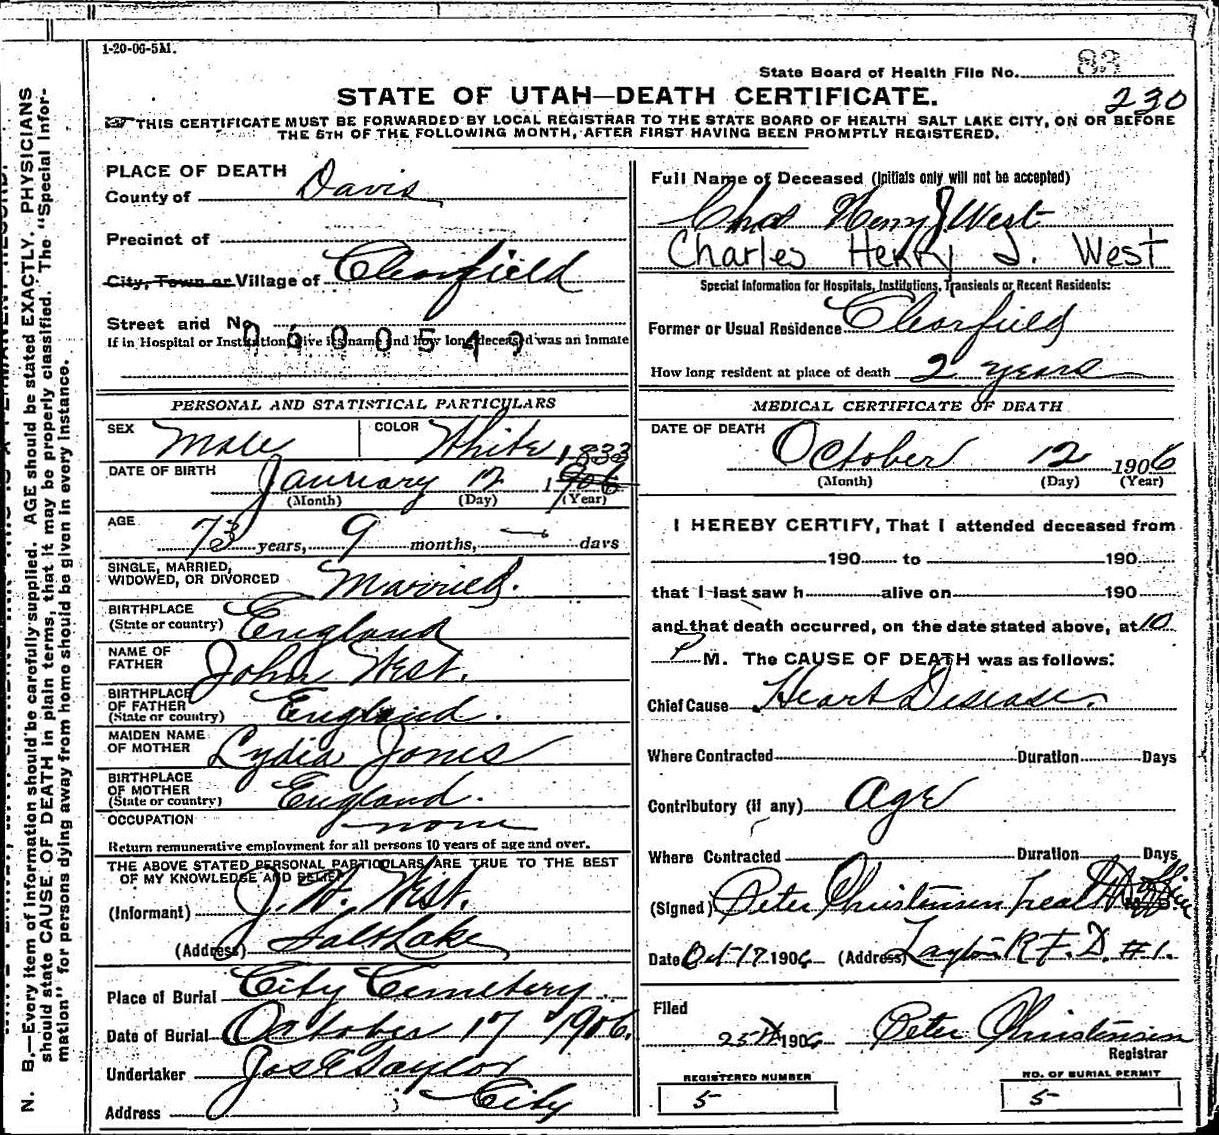 1-20-06-5M.
State Board of Health File No. 83
230
STATE OF UTAH—DEATH CERTIFICATE.
THIS CERTIFICATE MUST BE FORWARDED BY LOCAL REGISTRAR TO THE STATE BOARD OF HEALTH SALT LAKE CITY, ON OR BEFORE
THE 5TH OF THE FOLLOWING MONTH, AFTER FIRST HAVING BEEN PROMPTLY REGISTERED.
PLACE OF DEATH
County of Davis
Precinct of
City, Town or Village of Clearfield
Street and No.
0600549
If in Hospital or Institution give its name and how long deceased was an inmate
Full Name of Deceased (Initials only will not be accepted)
Chas Henry J West
Charles Henry J. West
Special Information for Hospitals, Institutions, Transients or Recent Residents:
Former or Usual Residence Clearfield
How long resident at place of death 2 years
PERSONAL AND STATISTICAL PARTICULARS
SEX Male COLOR White
1833
DATE OF BIRTH January 12 1906
(Month) (Day) (Year)
AGE 73 years, 9 months, — days
SINGLE, MARRIED,
WIDOWED, OR DIVORCED Married.
BIRTHPLACE
(State or country) England
NAME OF
FATHER John West.
BIRTHPLACE
OF FATHER
(State or country) England.
MAIDEN NAME
OF MOTHER Lydia Jones
BIRTHPLACE
OF MOTHER
(State or country) England.
OCCUPATION none
Return remunerative employment for all persons 10 years of age and over.
THE ABOVE STATED PERSONAL PARTICULARS ARE TRUE TO THE BEST
OF MY KNOWLEDGE AND BELIEF
(Informant) J. H. West.
(Address) Salt Lake
Place of Burial City Cemetery
Date of Burial October 17 1906.
Undertaker Jos E Taylor
Address City
MEDICAL CERTIFICATE OF DEATH
DATE OF DEATH October 12 1906
(Month) (Day) (Year)
I HEREBY CERTIFY, That I attended deceased from
190 to 190
that I last saw h alive on 190
and that death occurred, on the date stated above, at 10
P M. The CAUSE OF DEATH was as follows:
Chief Cause Heart Disease.
Where Contracted Duration Days
Contributory (if any) age
Where Contracted Duration Days
(Signed) Peter Christensen Health Officer
Date Oct 17 1906 (Address) Layton R F. D. #1.
Filed
25th 1906 Peter Christensen
Registrar
REGISTERED NUMBER
5
NO. OF BURIAL PERMIT
5
N. B.—Every item of information should be carefully supplied. AGE should be stated EXACTLY. PHYSICIANS
should state CAUSE OF DEATH in plain terms, that it may be properly classified. The "Special Infor-
mation" for persons dying away from home should be given in every instance.